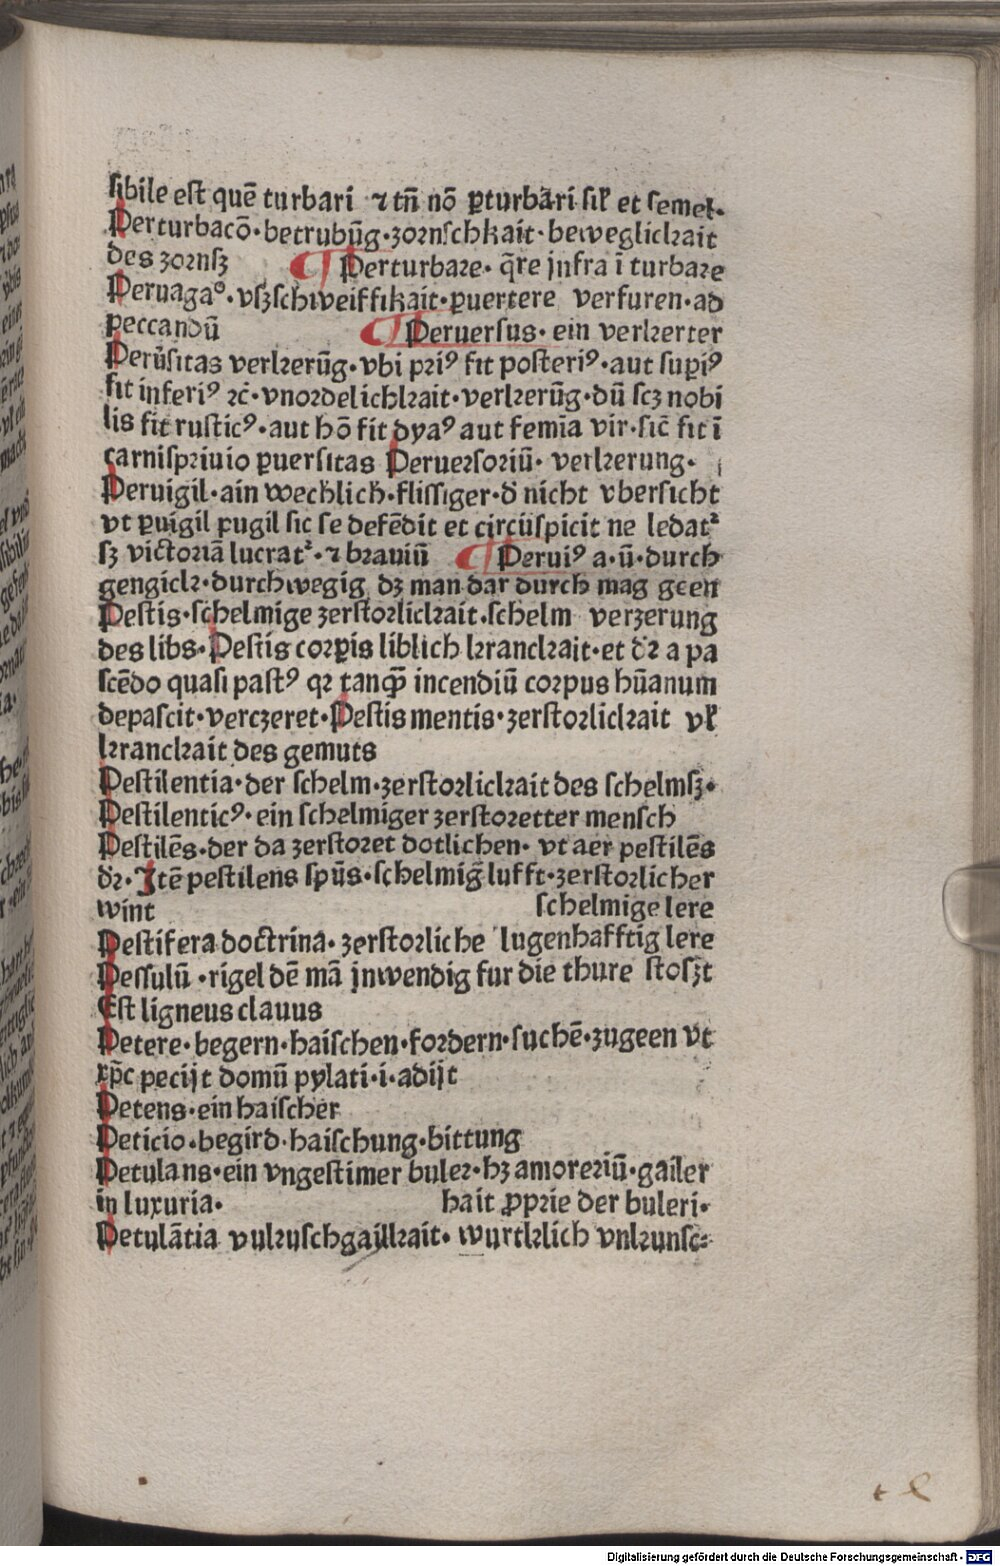 sibile est quē turbari ⁊ tn̄ nō ꝑturbari sil̕ et semel·
Perturbacō·betrubūg·zornschkait·beweglickait
des zornsz ¶ Perturbare· q̄re jnfra ī turbare
Peruagaᵒ·vszschweiffikait·ꝑuertere verfuren·ad
peccandū ¶ Peruersus· ein verkerter
Perūsitas verkerūg·vbi priꝰ fit posteriꝰ·aut supiꝰ
fit inferiꝰ ⁊c̄·vnordelichkait·verkerūg·dū scꝫ nobi
lis fit rusticꝰ·aut hō fit dyaꝰ aut femia vir·sic̄ fit ī
carnispriuio ꝑuersitas Peruersoriū· verkerung·
Peruigil·ain wechlich·flissiger·d̄ nicht vbersicht
vt ꝑuigil pugil sic se defēdit et circūspicit ne ledat᷑
sꝫ victoriā lucrat᷑·⁊ brauiū ¶ Peruiꝰ a·ū·durch
gengick·durchwegig dꝫ man dar durch mag geen
Pestis·schelmige zerstorlickait·schelm verzerung
des libs·Pestis corꝑis liblich kranckait·et dr̄ a pa
scēdo quasi pastꝰ qꝛ tanqꝫ incendiū corpus hūanum
depascit·verczeret·Pestis mentis·zerstorlickait vl̕
kranckait des gemuts
Pestilentia·der schelm·zerstorlickait des schelmsz·
Pestilenticꝰ·ein schelmiger zerstoretter mensch
Pestilēs·der da zerstoret dotlichen· vt aer pestilēs
dr̄·Jtē pestilens spūs·schelmiḡ lufft·zerstorlicher
wint schelmige lere
Pestifera doctrina·zerstorliche lugenhafftig lere
Pessulū ·rigel dē mā jnwendig fur die thure stoszt
Est ligneus clauus
Petere·begern·haischen·fordern·suchē·zugeen vt
xp̄c pecijt domū pylati·i·adijt
Petens·ein haischer
Peticio·begird·haischung·bittung
Petulans·ein vngestimer buler·hꝫ amoreriū·gailer
in luxuria· hait ꝓprie der buleri·
Petulātia vulzuschgailkait· wurtklich vnkunsc⸗
t
Digitalisierung gefördert durch die Deutsche Forschungsgemeinschaft - DFG